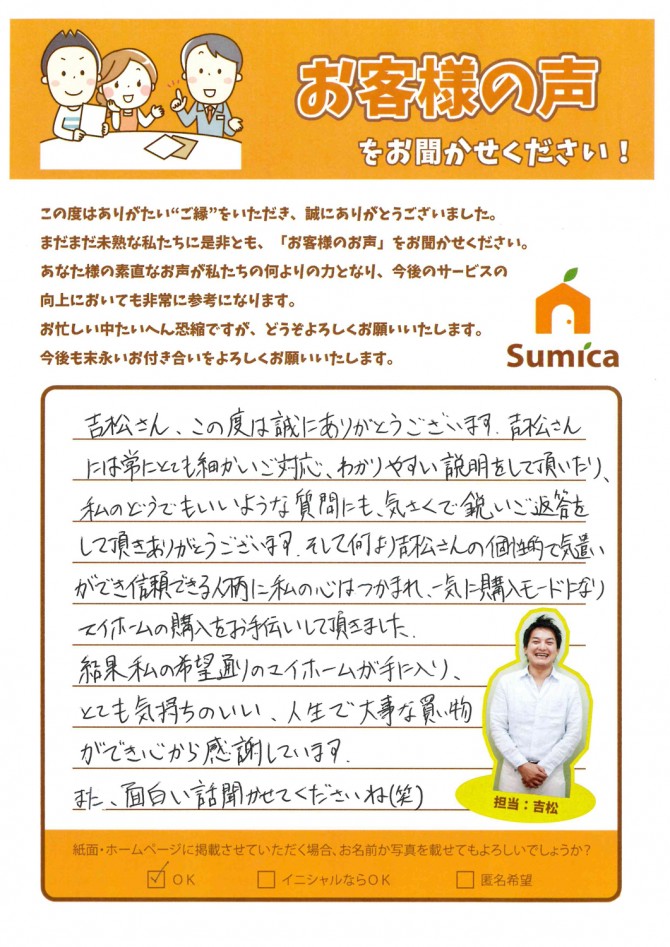 お客様の声
をお聞かせください！
この度はありがたい“ご縁”をいただき、誠にありがとうございました。
まだまだ未熟な私たちに是非とも、「お客様のお声」をお聞かせください。
あなた様の素直なお声が私たちの何よりの力となり、今後のサービスの
向上においても非常に参考になります。
お忙しい中たいへん恐縮ですが、どうぞよろしくお願いいたします。
今後も末永いお付き合いをよろしくお願いいたします。
Sumica
吉松さん、この度は誠にありがとうございます。吉松さん
には常にとても細かいご対応、わかりやすい説明をして頂いたり、
私のどうでもいいような質問にも、気さくで鋭いご返答を
して頂きありがとうございます。そして何より吉松さんの個性的で気遣い
ができ信頼できる人柄に私の心はつかまれ、一気に購入モードになり
マイホームの購入をお手伝いして頂きました。
結果私の希望通りのマイホームが手に入り、
とても気持ちのいい、人生で大事な買い物
ができ心から感謝しています。
また、面白い話聞かせてくださいね(笑)
担当：吉松
紙面・ホームページに掲載させていただく場合、お名前か写真を載せてもよろしいでしょうか？
☑ OK □ イニシャルならOK □ 匿名希望